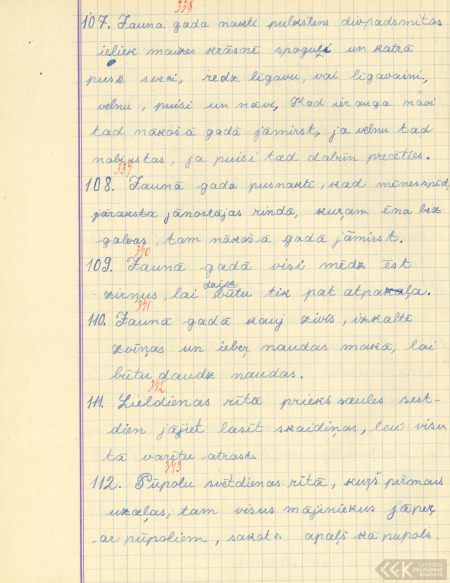 338
107. Jaunā gada naktī pulkstens divpadsmitos
ieliek maizes krāsnē spoguļi un katrā
pusē sveci, redz līgavu, vai līgavaini,
velnu, puisi un nāvi. Kad ierauga nāvi
tad nākošā gadā jāmirst, ja velnu tad
nabagstas, ja puisi tad dabūn precēties.
339
108. Jaunā gada pusnaktī, kad mēness spīd,
jāraksta jānostājas rindā, kuŗam ēna bez
galvas, tam nākošā gadā jāmirst.
340
109. Jaunā gadā visi mēdz ēst
zirņus, lai būtu tik pat atpakaļa.
341
110. Jaunā gadā kauj zivis, izkaltē
zvīņas un ieber naudas makā, lai
būtu daudz naudas.
342
111. Lieldienas rītā priekš saules sest-
dien jājiet lasīt skaidiņas, lai visu
tā varētu atrast.
343
112. Pūpolu svētdienas rītā, kuŗš pirmais
uzceļas, tam visus mājiniekus jāper
ar pūpoliem, sakot: apaļš kā pupols.
LATVIEŠU
FOLKLORAS
KRĀTUVE